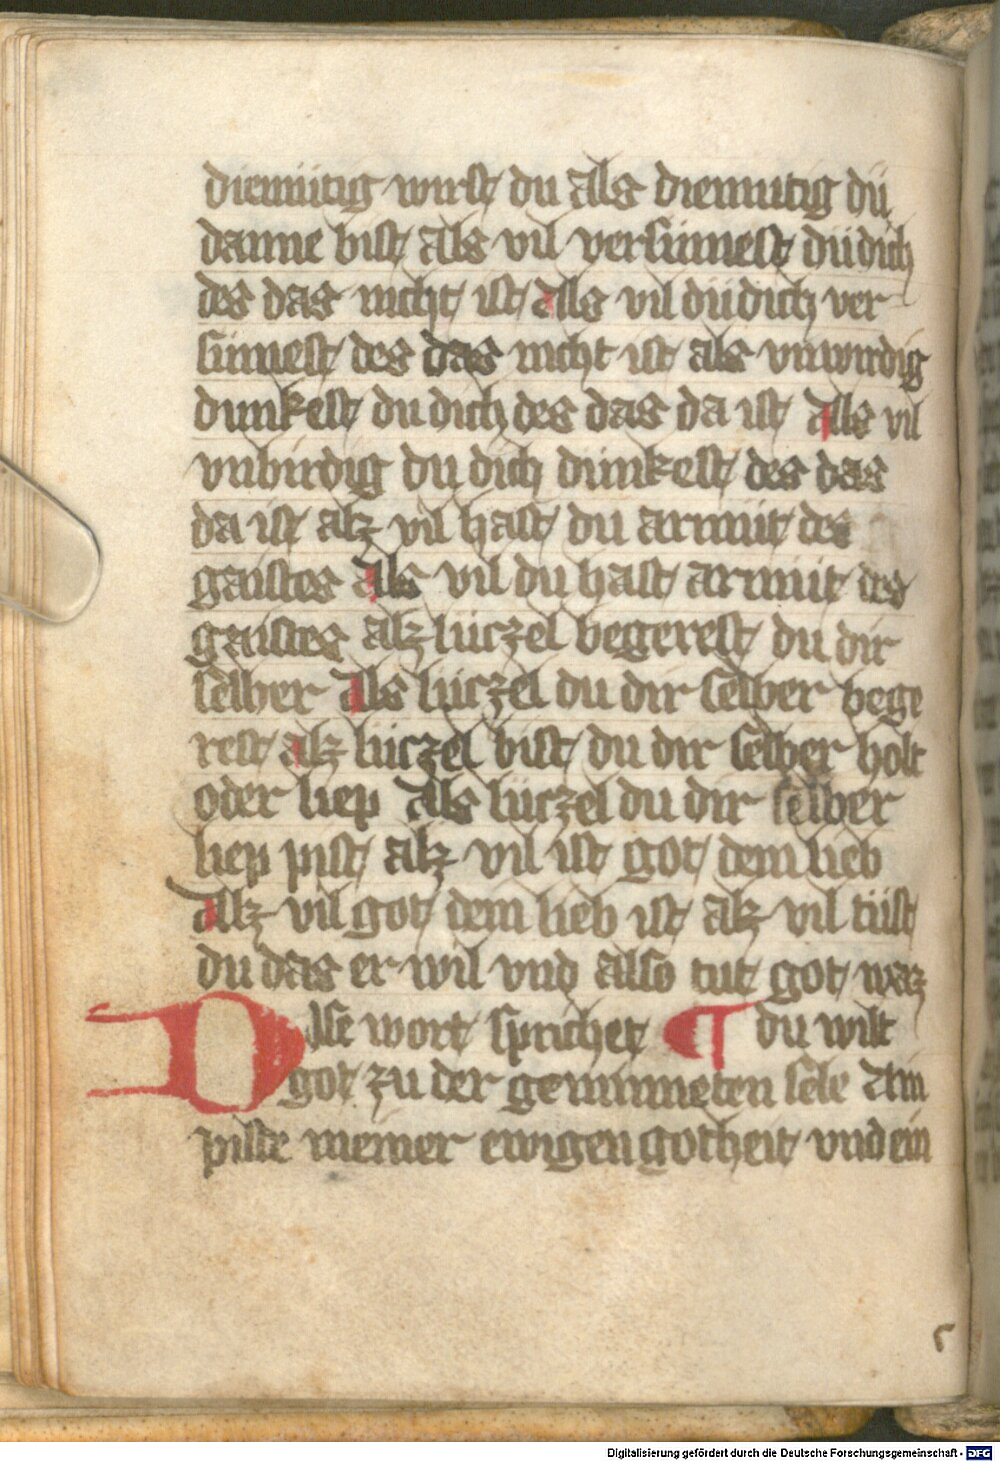 diemütig wirst du als diemutig dü
danne bist als vil versumest dü dich
des das nicht ist alls vil dü dich ver-
sumest des das nicht ist als vnwirdig
dunkest du dich des das da ist alls vil
vnbirdig du dich dunkest des das
da ist alz vil hast du armüt des
gaistes als vil du hast armüt des
gaistes alz lüczel begerest du dir
selber als lüczel du dir selber bege
rest alz lüczel bist du dir selber holt
oder liep als lüczel du dir selber
liep pist alz vil ist got dem lieb
alz vil got dem lieb ist alz vil tüst
du das er wil vnd also tut got waz
Disse wort sprichet ¶ du wilt
got zu der gemimmeten sele Ain
pilde meiner ewigen gotheit vnd ein
5
Digitalisierung gefördert durch die Deutsche Forschungsgemeinschaft - DFG